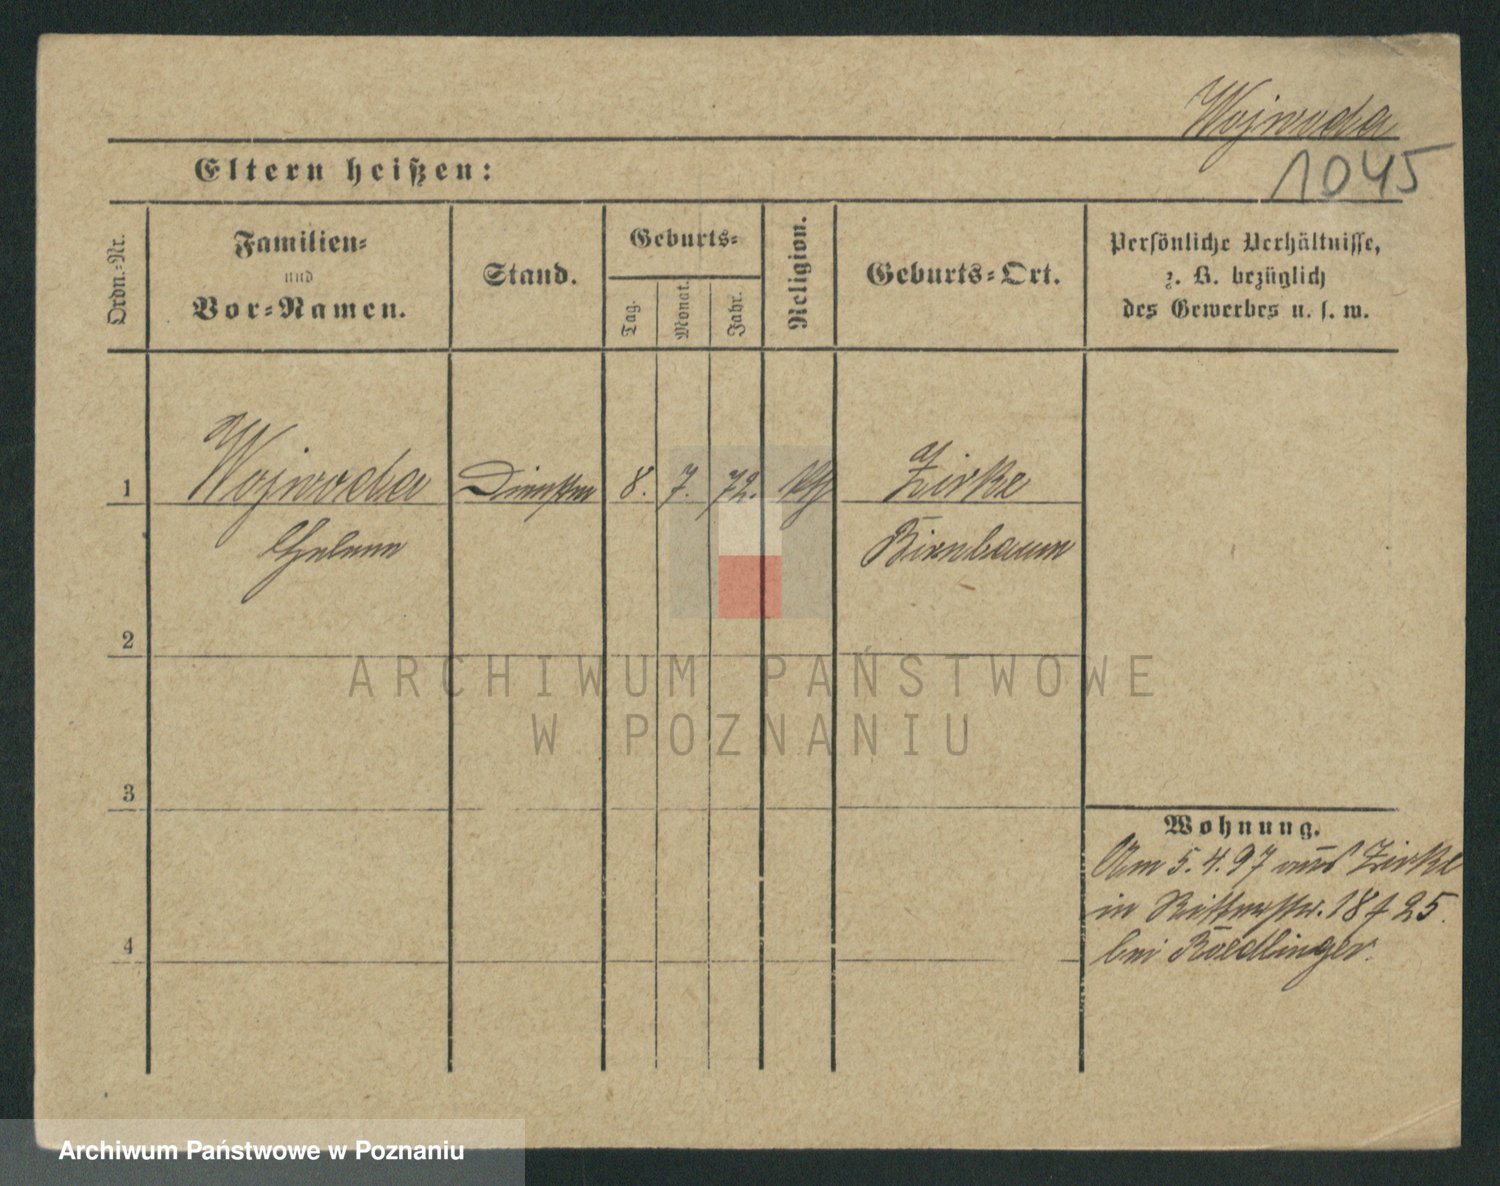 Wojwoda
1045
Eltern heißen:
Ordn.-Nr.
Familien-
und
Vor-Namen.
Stand.
Geburts-
Tag.
Monat.
Jahr.
Religion.
Geburts-Ort.
Persönliche Verhältnisse,
z. B. bezüglich
des Gewerbes u. s. w.
1 Wojwoda 8. 7. 72. Zirke
Helene Birnbaum
2
ARCHIWUM PAŃSTWOWE
W POZNANIU
3
Wohnung.
Am 5.4.97 aus Zirke
in Ritterstr. 18 25.
bei Roedlinger.
4
Archiwum Państwowe w Poznaniu